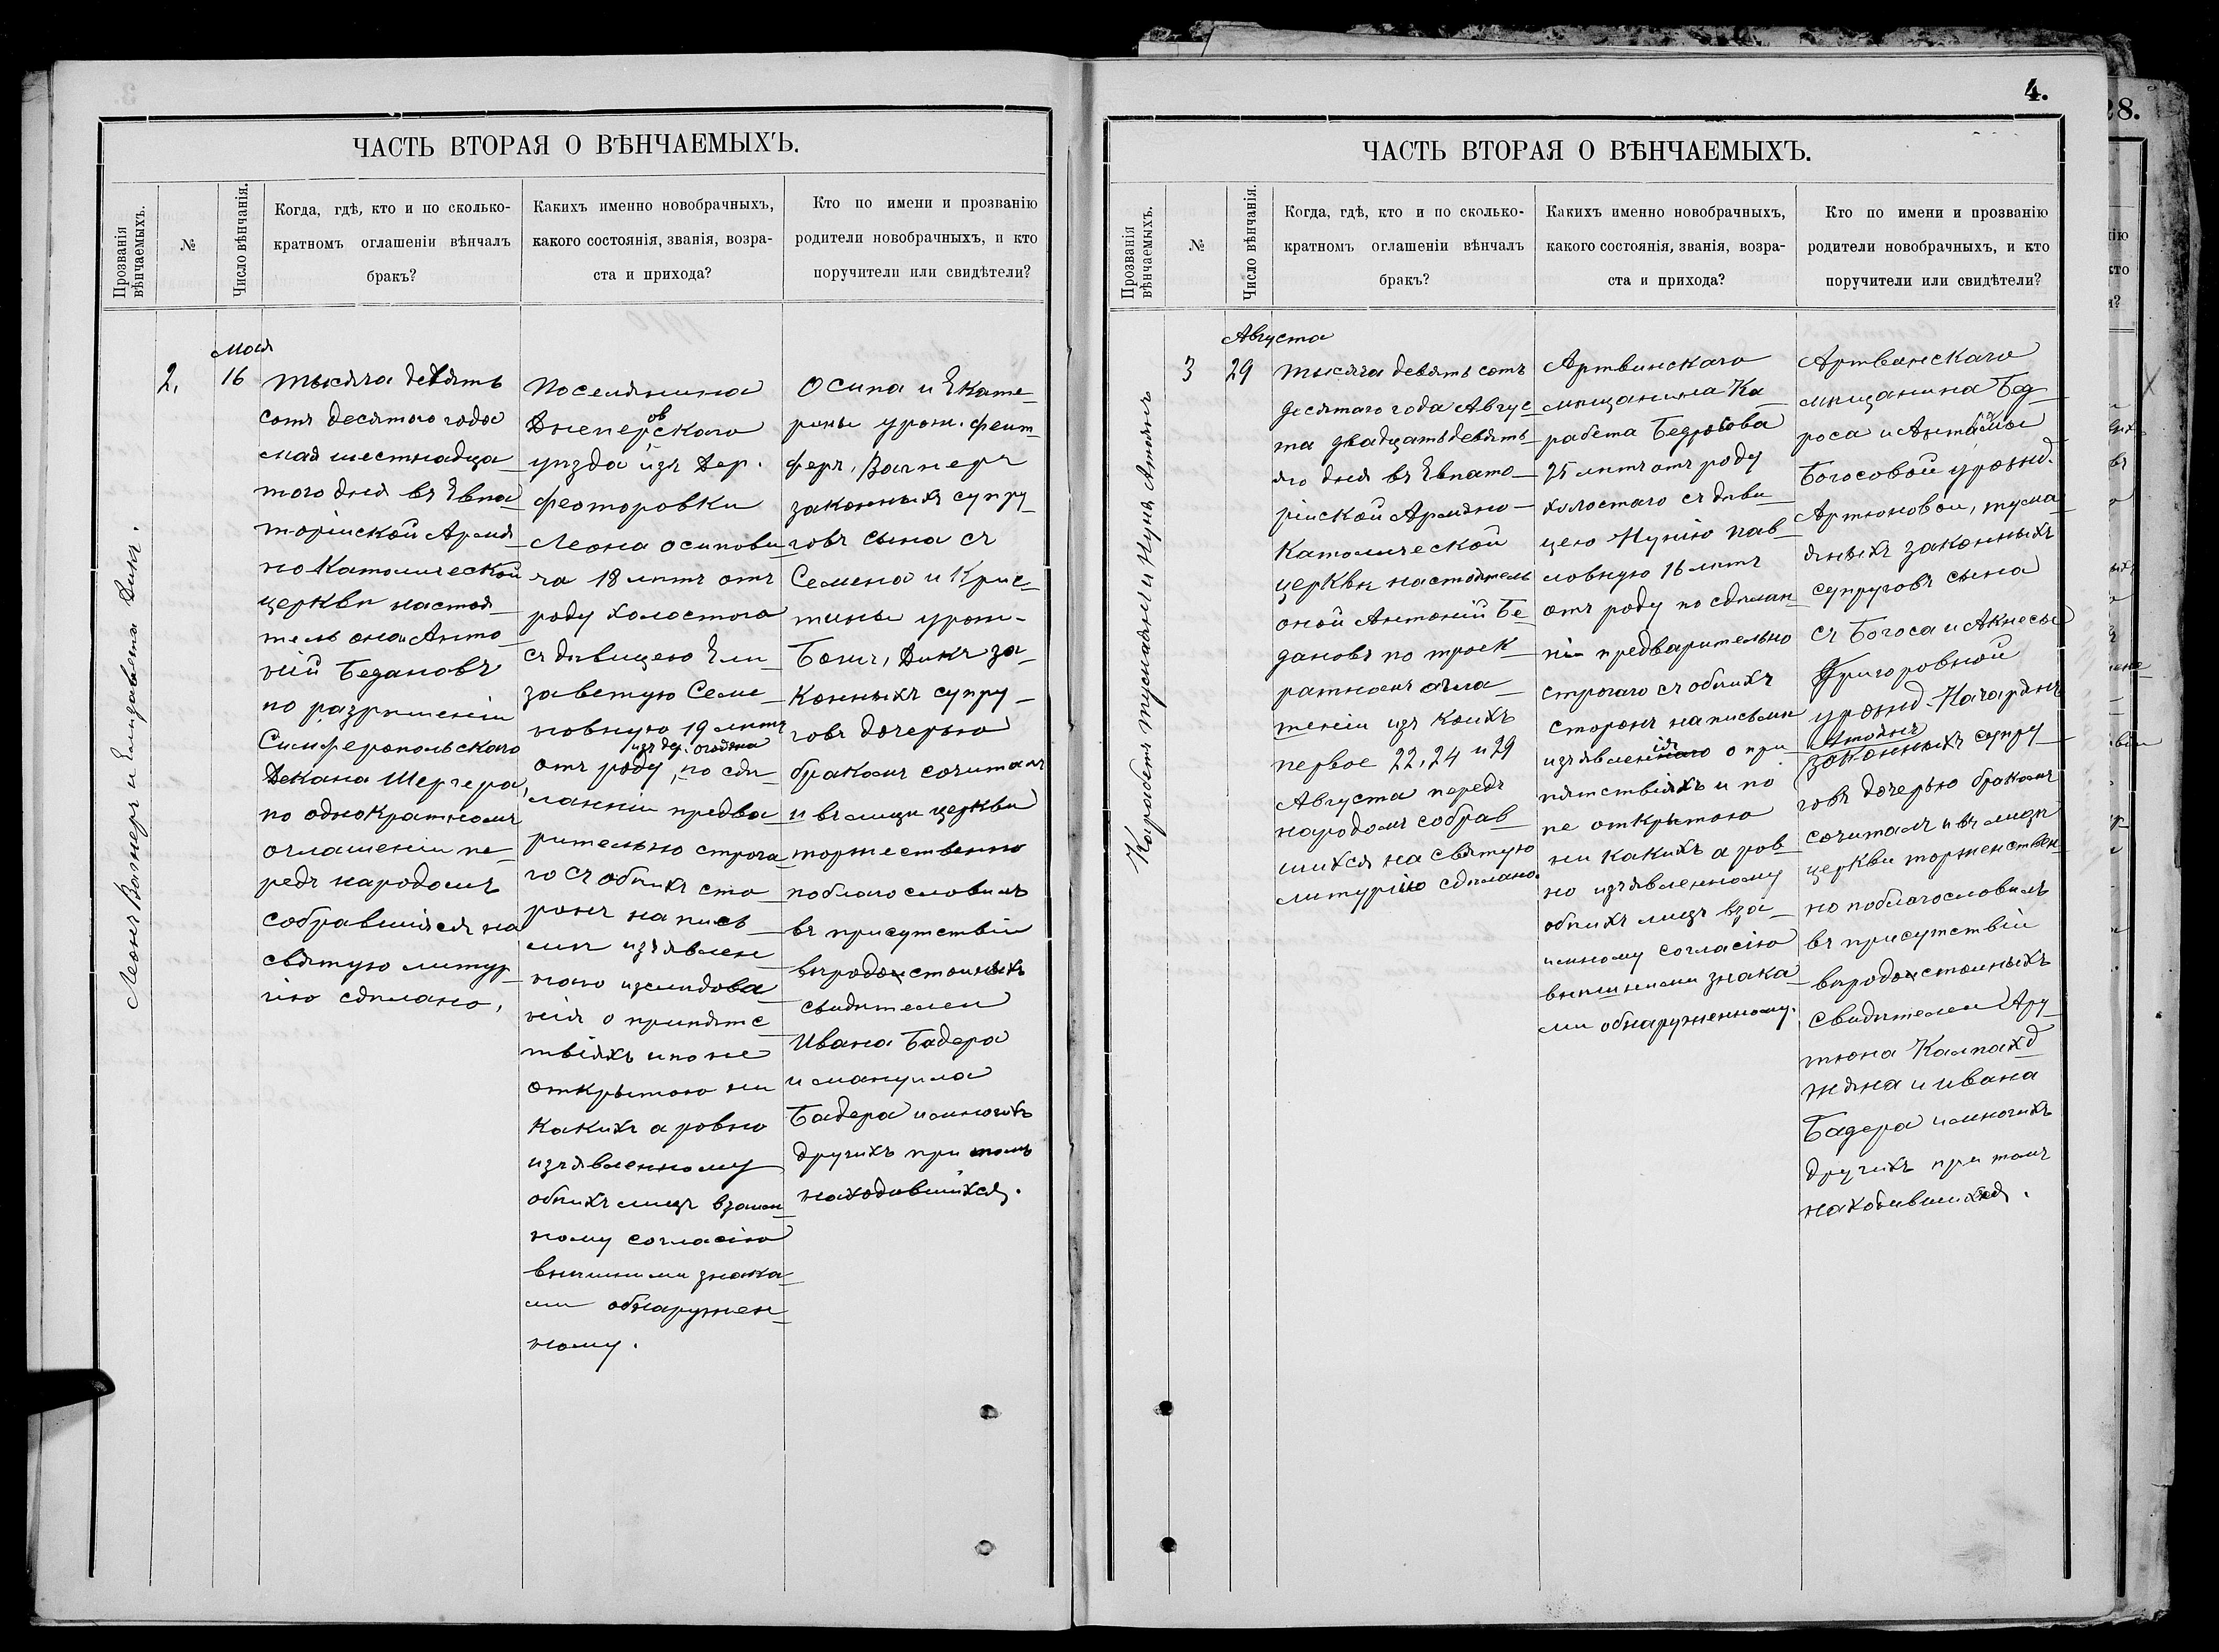 4.
28.
ЧАСТЬ ВТОРАЯ О ВѢНЧАЕМЫХЪ.
Прозванія вѣнчаемыхъ.
№
Число вѣнчанія.
Когда, гдѣ, кто и по сколько-
кратномъ оглашеніи вѣнчалъ
бракъ?
Какихъ именно новобрачныхъ,
какого состоянія, званія, возра-
ста и прихода?
Кто по имени и прозванію
родители новобрачныхъ, и кто
поручители или свидѣтели?
Леонъ Вагнеръ и Елизавета Дикъ.
Мая
2.
16
тысяча девять
сотъ десятого года
мая шестнадца
того дня въ Евпа
торійской Армя
но Католической
церкви настоя
тель оной Анто
ній Бедановъ
по разрѣшеніи
Симферопольскаго
Декана Шерера,
по однократномъ
оглашеніи пе-
редъ народомъ
собравшійся на
святую литур
гію сдѣлано,
Поселянина
Днепровскаго
уѣзда изъ дер.
Феоторовки
Леона Осипови
ча 18 лѣтъ отъ
роду холостого
съ дѣвицею Ели
заветую Семе
новную 19 лѣтъ
отъ роду, по сдѣ
ланніи предва
рительно строга
го съ обѣихъ сто
ронъ на пись
мѣ изъявлен
наго изслидова
нія о припятс
твіяхъ и по не
открытою ни
какихъ а ровно
изъявленному
обѣихъ лицъ взаим
ному согласію
внѣшними знака
ми обнаружен
ному.
Осипа и Екате
рины урож. Феит
феръ, Вагнеръ
законныхъ супру
говъ сына съ
Семена и Крис
тины урож-
Бемъ, Дикъ за
конныхъ супру
говъ дочерью
бракомъ сочиталъ
и въ лици церкви
торжественно
поблагословилъ
въ присутствіи
вѣродостоиныхъ
свидѣтелеи
Ивана Бадера
и мануила
Бадера и многихъ
другихъ при томъ
находившійхся.
ЧАСТЬ ВТОРАЯ О ВѢНЧАЕМЫХЪ.
Прозванія вѣнчаемыхъ.
№
Число вѣнчанія.
Когда, гдѣ, кто и по сколько-
кратномъ оглашеніи вѣнчалъ
бракъ?
Какихъ именно новобрачныхъ,
какого состоянія, званія, возра-
ста и прихода?
Кто по имени и прозванію
родители новобрачныхъ, и кто
поручители или свидѣтели?
Карабетъ Тусмаянъ и Нуня Атоянъ
Августа
3
29
тысяча девять сотъ
десятаго года Авгус
та двадцать девять
яго дня въ Евпато
рійской Армяно
Католической
церквы настоятель
оной Антоній Бе
дановъ по троек
ратномъ огла
шеніи изъ коихъ
первое 22, 24 и 29
Августа передъ
народомъ собрав
шихся на святую
литургію сдѣлано
Артвинскаго
мѣщанина Ка
рабета Бедросова
25 лѣтъ отъ роду
холостаго съ дѣви
цею Нунію Пав
ловную 16 лѣтъ
отъ роду по сдѣлан
ніи предварительно
строгаго съ обѣихъ
сторонъ написьмѣ
изъявленія о при
пятствіяхъ и по
не открытою
ни какихъ а ров
но изъявленному
обѣихъ лицъ вза
имному согласію
внѣшними знака
ми обнаруженному.
Артвинскаго
мѣщанина Бед
роса и
Богосовой урожд.
Артюновои, тусма
яныхъ законныхъ
супруговъ сына
съ Богоса и Акнесы
Григоровной
урожд.
Атоянъ
законныхъ супру
говъ дочерью бракомъ
сочиталъ и въ лицѣ
церкви торженствен
но поблагословилъ
въ присутствіи
вѣродостоиныхъ
свидѣтелеи Ару
тюна Калпахд
жяна и ивана
Бадера и многихъ
другихъ при томъ
находившихся.